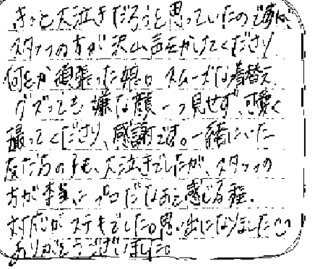 きっと大泣きだろうと思っていたのですが、
スタッフの方が沢山声をかけてくださり
何とか頑張った娘。スムーズな着替え
グズっても嫌な顔一つ見せず、可愛く
撮ってくださり、感謝です。一緒にいた
友だちの子も、大泣きでしたが、スタッフの
方が本当にプロだなぁと感じる程、
対応がステキでした。思い出になりました
ありがとうございました。